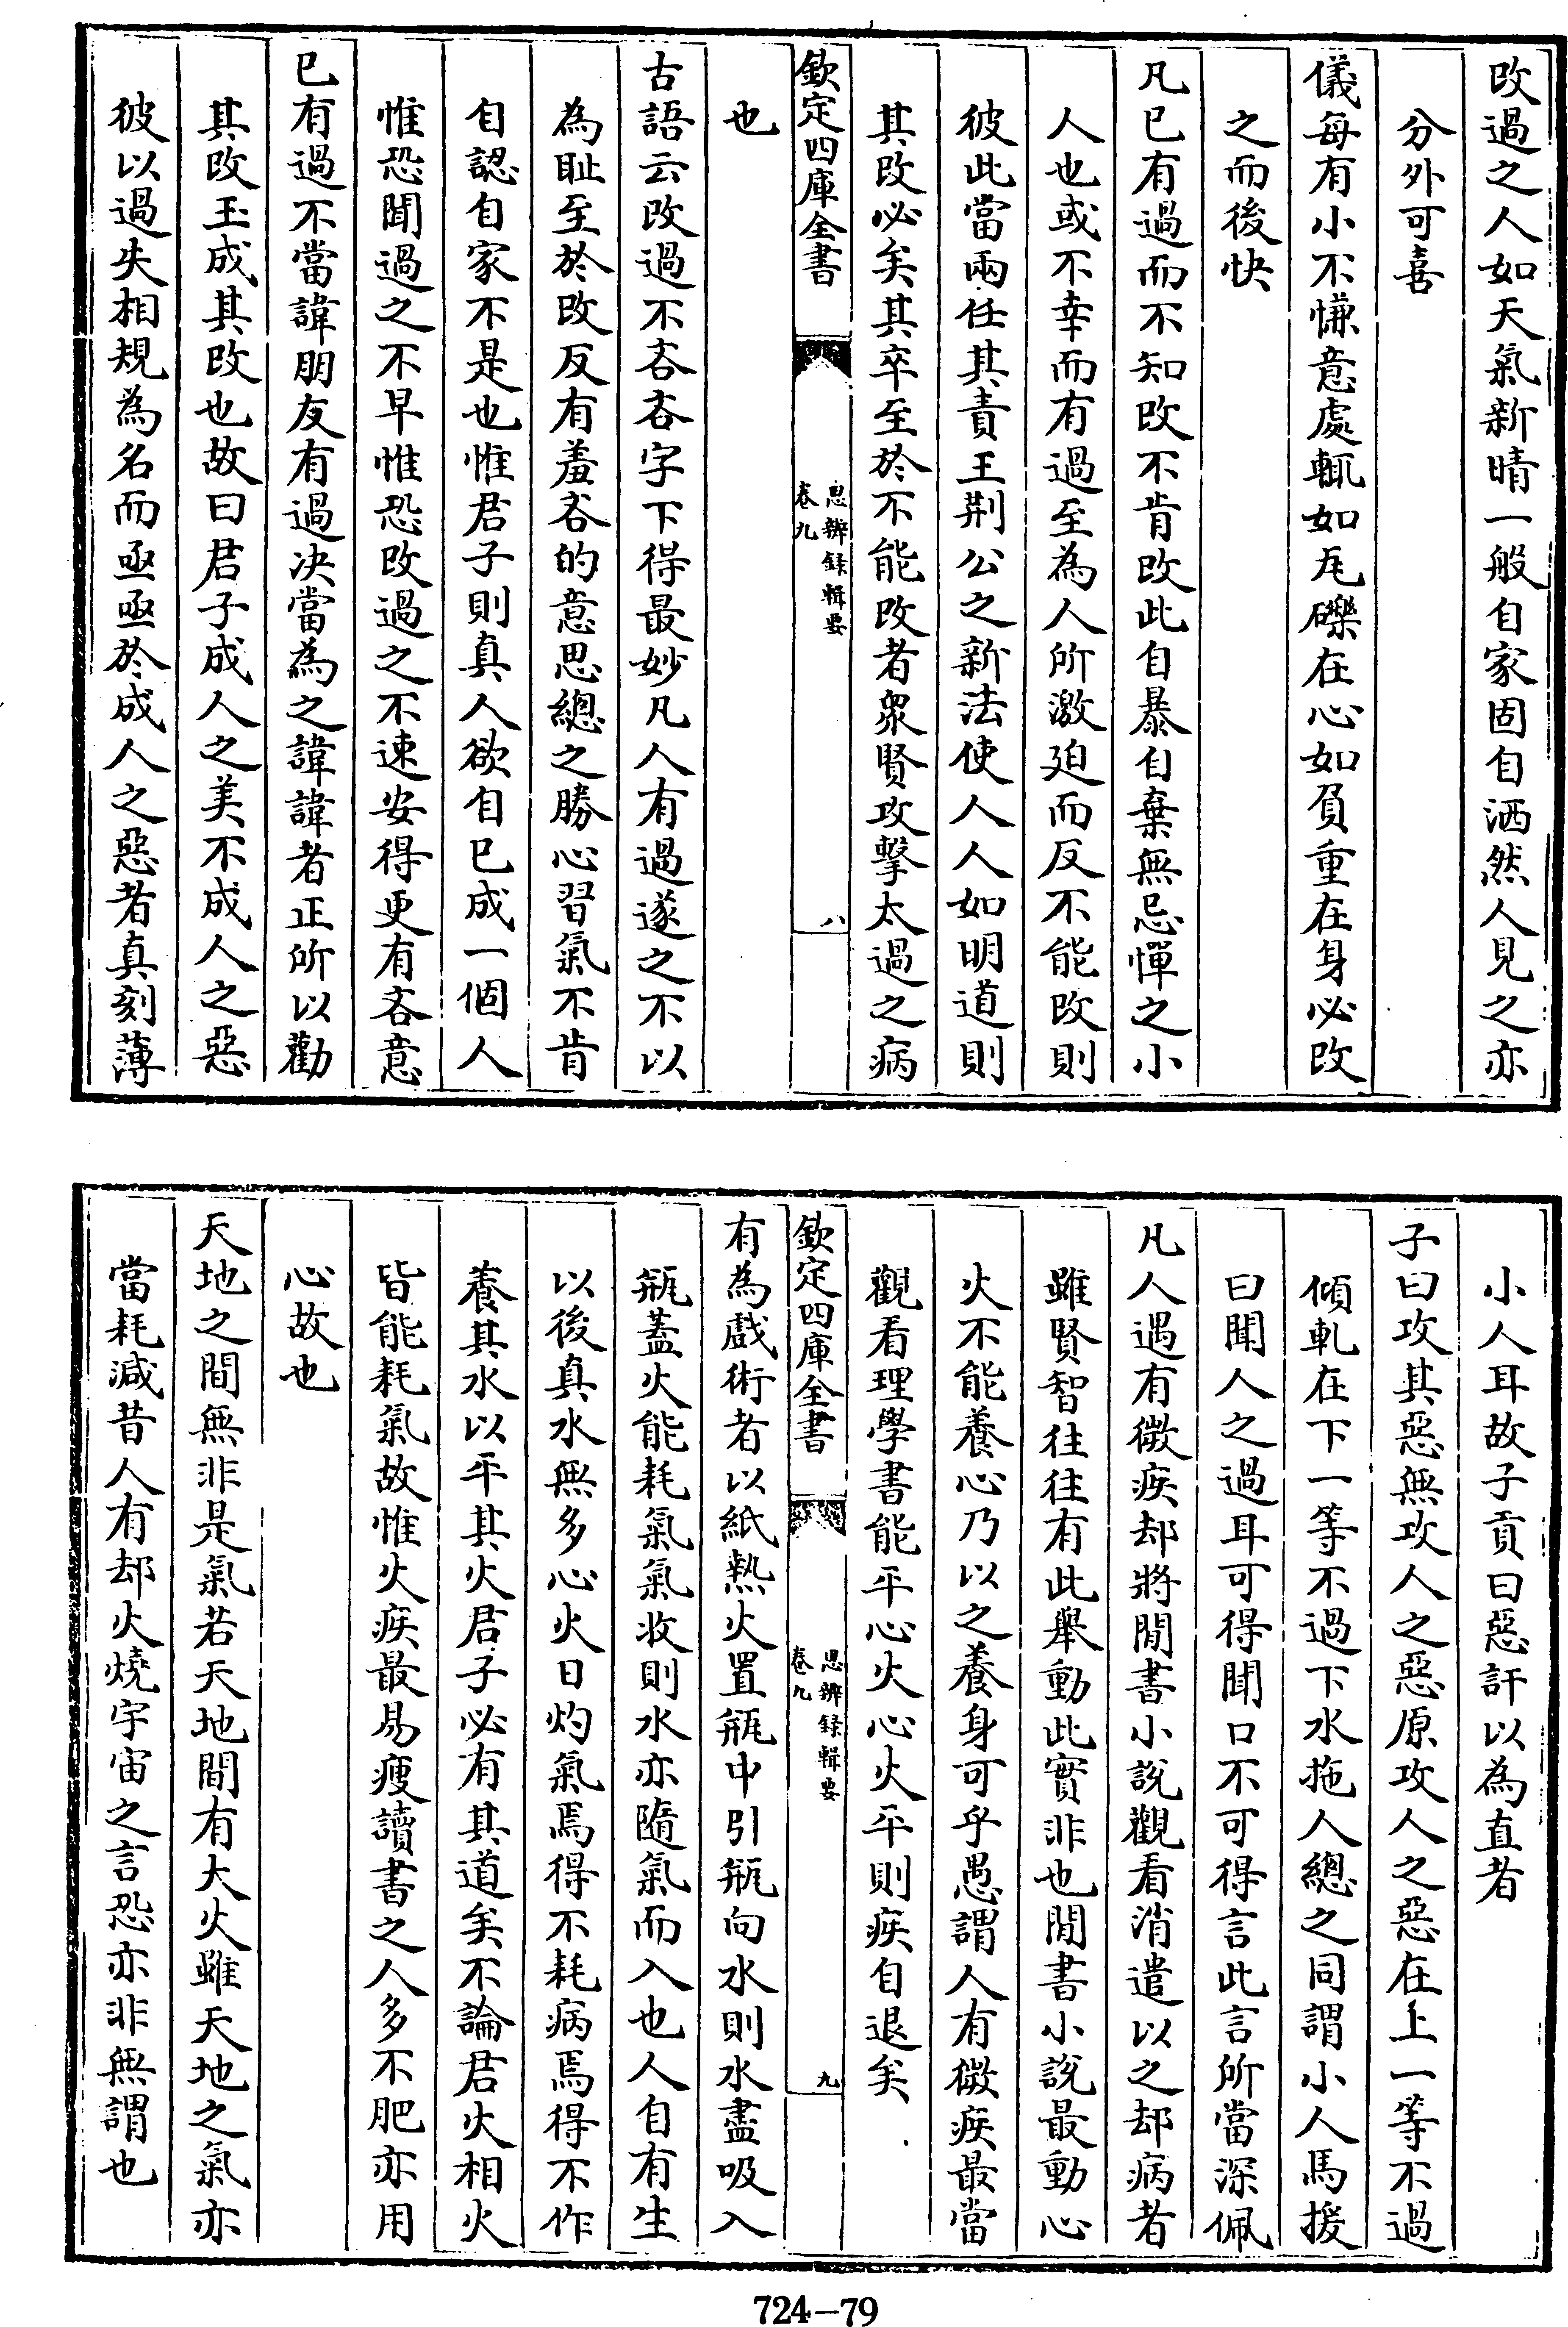 改過之人如天氣新晴一般自家固自洒然人見之亦
分外可喜
儀每有小不慊意處輒如瓦礫在心如負重在身必改
之而後快
凡已有過而不知改不肯改此自暴自棄無忌憚之小
人也或不幸而有過至為人所激廹而反不能改則
彼此當兩任其責王荆公之新法使人人如明道則
其改必矣其卒至於不能改者衆賢攻擊太過之病
欽定四庫全書
思辨録輯要
卷九
八
也
古語云改過不吝吝字下得最妙凡人有過遂之不以
為耻至於改反有羞吝的意思總之勝心習氣不肯
自認自家不是也惟君子則真人欲自已成一個人
惟恐聞過之不早惟恐改過之不速安得更有吝意
已有過不當諱朋友有過決當為之諱諱者正所以勸
其改玉成其改也故曰君子成人之美不成人之惡
彼以過失相規為名而亟亟於成人之惡者真刻薄
小人耳故子貢曰惡訐以為直者
子曰攻其惡無攻人之惡原攻人之惡在上一等不過
傾軋在下一等不過下水拖人總之同謂小人馬援
曰聞人之過耳可得聞口不可得言此言所當深佩
凡人遇有微疾却將閒書小說觀看消遣以之却病者
雖賢智往往有此舉動此實非也閒書小說最動心
火不能養心乃以之養身可乎愚謂人有微疾最當
觀看理學書能平心火心火平則疾自退矣
欽定四庫全書
思辨録輯要
卷九
九
有為戲術者以紙熱火置瓶中引瓶向水則水盡吸入
瓶蓋火能耗氣氣收則水亦隨氣而入也人自有生
以後真水無多心火日灼氣焉得不耗病焉得不作
養其水以平其火君子必有其道矣不論君火相火
皆能耗氣故惟火疾最易瘦讀書之人多不肥亦用
心故也
天地之間無非是氣若天地間有大火雖天地之氣亦
當耗減昔人有却火燒宇宙之言恐亦非無謂也
724—79